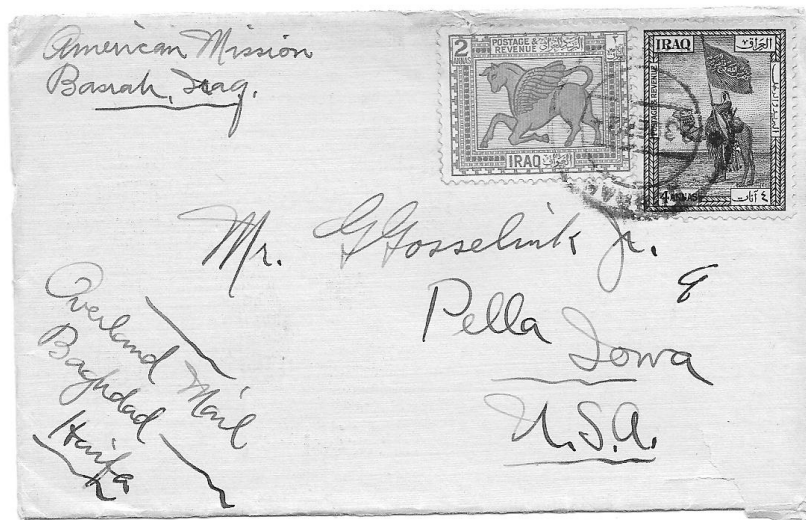 American Mission
Basrah, Iraq.
2
ANNAS
POSTAGE &
REVENUE
IRAQ
العراق
IRAQ
العراق
4 ANNAS
٤ آنات
Mr. G Gosselink Jr.
Pella
Iowa
U.S.A.
Overland Mail
Baghdad
Haifa